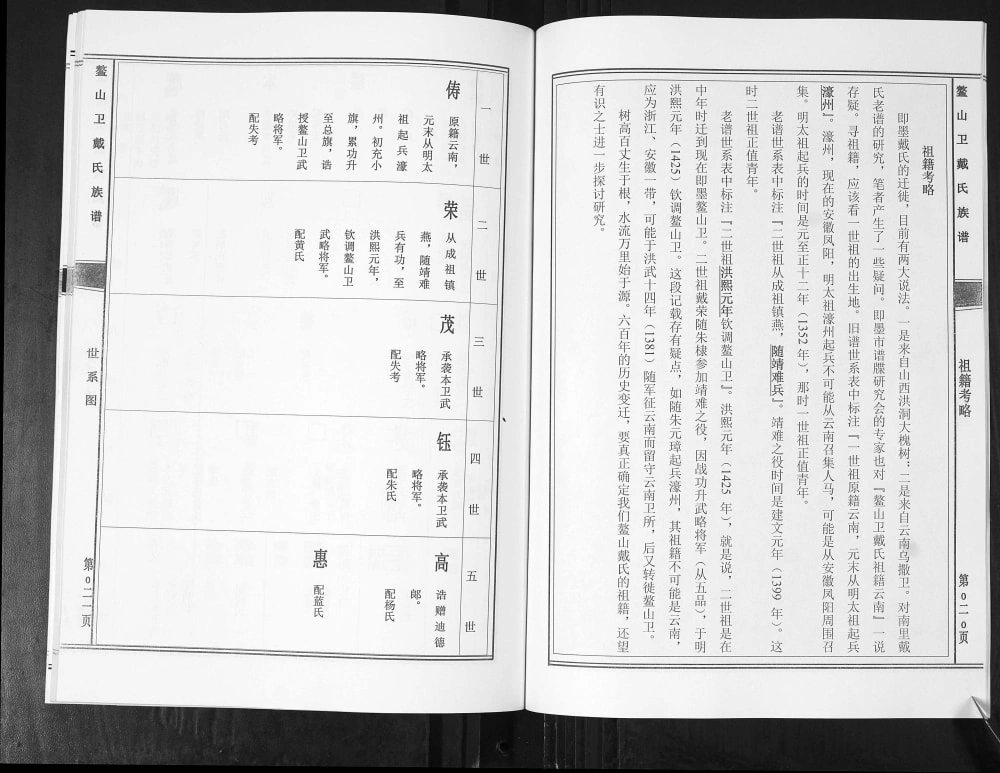 鳌山卫戴氏族谱
祖籍考略
第0二0页
祖籍考略
即墨戴氏的迁徙，目前有两大说法。一是来自山西洪洞大槐树；二是来自云南乌撒卫。对南里戴
氏老谱的研究，笔者产生了一些疑问。即墨市谱牒研究会的专家也对『鳌山卫戴氏祖籍云南』一说
存疑。寻祖籍，应该看一世祖的出生地。旧谱世系表中标注『一世祖原籍云南，元末从明太祖起兵
濠州』。濠州，现在的安徽凤阳，明太祖濠州起兵不可能从云南召集人马，可能是从安徽凤阳周围召
集。明太祖起兵的时间是元至正十二年（1352年），那时一世祖正值青年。
老谱世系表中标注『二世祖从成祖镇燕，随靖难兵』。靖难之役时间是建文元年（1399年）。这
时二世祖正值青年。
老谱世系表中标注『二世祖洪熙元年钦调鳌山卫』。洪熙元年（1425年），就是说，二世祖是在
中年时迁到现在即墨鳌山卫。二世祖戴荣随朱棣参加靖难之役，因战功升武略将军（从五品），于明
洪熙元年（1425）钦调鳌山卫。这段记载存有疑点，如随朱元璋起兵濠州，其祖籍不可能是云南，
应为浙江、安徽一带，可能于洪武十四年（1381）随军征云南而留守云南卫所，后又转徙鳌山卫。
树高百丈生于根，水流万里始于源。六百年的历史变迁，要真正确定我们鳌山戴氏的祖籍，还望
有识之士进一步探讨研究。
一世
俦
原籍云南，
元末从明太
祖起兵濠
州。初充小
旗，累功升
至总旗，诰
授鳌山卫武
略将军。
配失考
二世
荣
从成祖镇
燕，随靖难
兵有功，至
洪熙元年，
钦调鳌山卫
武略将军。
配黄氏
三世
茂
承袭本卫武
略将军。
配失考
四世
钰
承袭本卫武
略将军。
配朱氏
五世
高
诰赠迪德
郎。
配杨氏
惠
配蓝氏
鳌山卫戴氏族谱
世系图
第0二一页